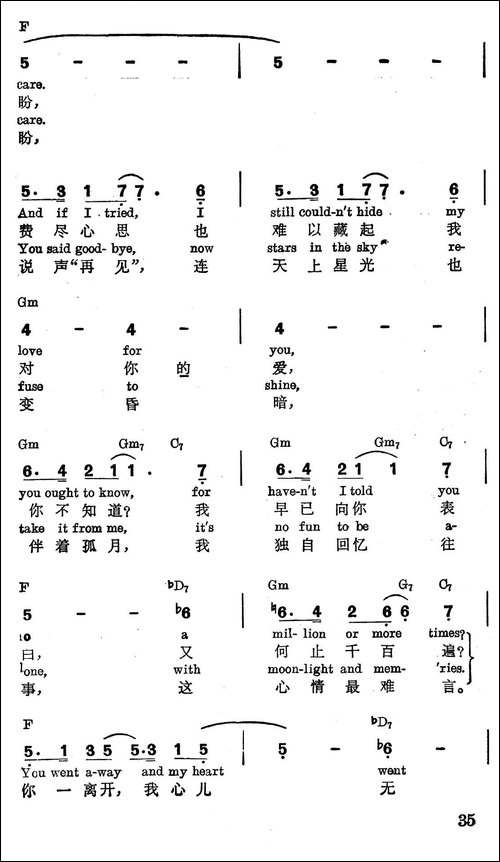 F
5 - - - | 5 - - -
care.
盼，
care.
盼，
5. 3 1 7 7. 6 | 5. 3 1 7 7. 6
And if I tried, I still could-n't hide my
费 尽 心 思 也 难 以 藏 起 我
You said good-bye, now stars in the sky re-
说 声“再 见”， 连 天 上 星 光 也
Gm
4 - 4 - | 4 - - -
love for you,
对 你 的 爱，
fuse to shine,
变 昏 暗，
Gm Gm7 C7 Gm Gm7 C7
6. 4 2 1 1. 7 | 6. 4 2 1 1 7
you ought to know, for have-n't I told you
你 不 知 道？ 我 早 已 向 你 表
take it from me, it's no fun to be a-
伴 着 孤 月， 我 独 自 回 忆 往
F ♭D7 Gm G7 C7
5 - - ♭6 | ♮6. 4 2 6 6 7
a mil-lion or more times?
白， 又 何 止 千 百 遍？
lone, with moon-light and mem-'ries.
事， 这 心 情 最 难 言。
F ♭D7
5. 1 3 5 5.3 1 5 | 5 - ♭6 -
You went a-way and my heart went
你 一 离 开， 我 心 儿 无
35